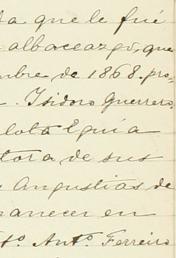 ta que le fué
albaceazgo, que
mbre de 1868. pro-
. Isidoro Guerrero,
lota Eguía
tora de sus
Angustias de
manecer en
to. Anto. Ferreiro